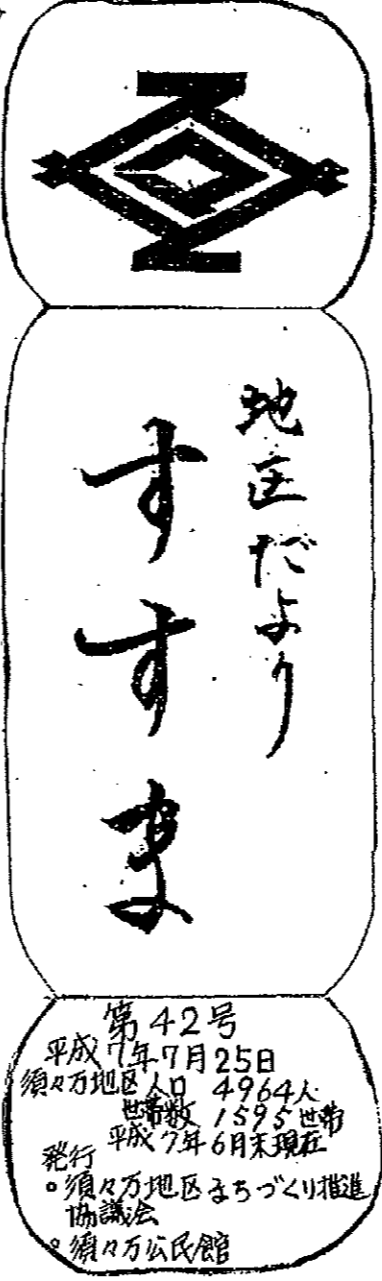 地区だより
すすま
第42号
平成7年7月25日
須々万地区人口 4964人
世帯数 1595世帯
平成7年6月末現在
発行
。須々万地区まちづくり推進
協議会
。須々万公民館